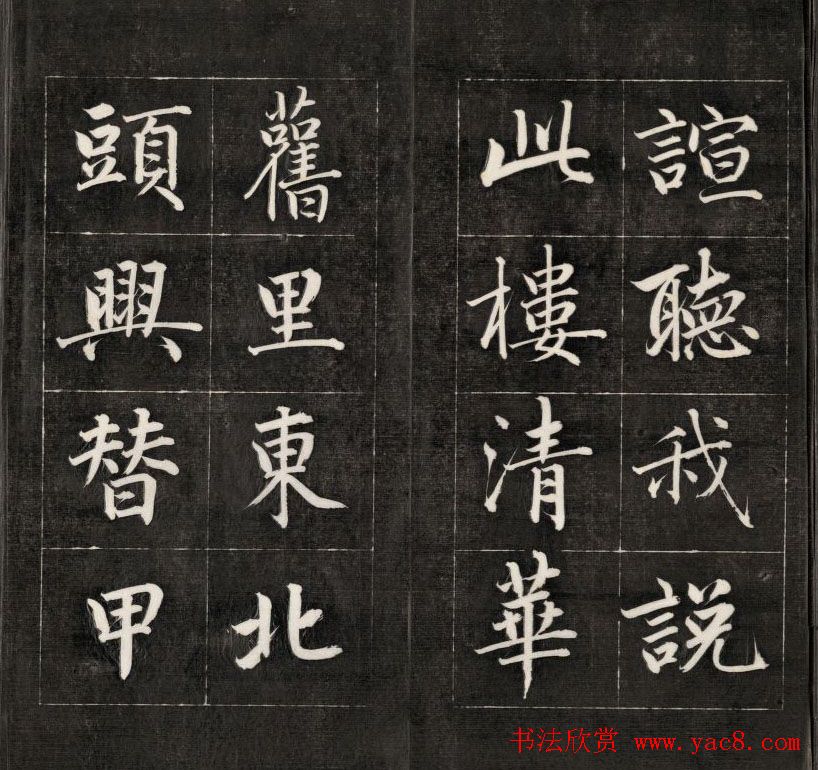 諠聽我說
此樓清華
舊里東北
頭興替甲
书法欣赏 www.yac8.com